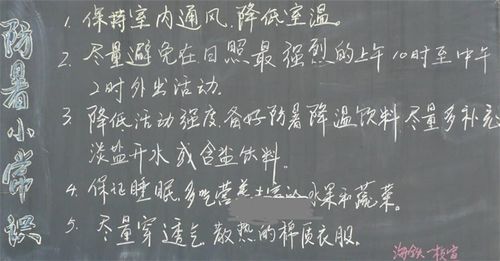 防暑小常识
1. 保持室内通风,降低室温。
2. 尽量避免在日照最强烈的上午10时至中午
2时外出活动.
3 降低活动强度.备好防暑降温饮料.尽量多补充
淡盐开水或含盐饮料。
4. 保证睡眠,多吃营养丰富的水果和蔬菜。
5. 尽量穿透气散热的棉质衣服。
海纵 宣